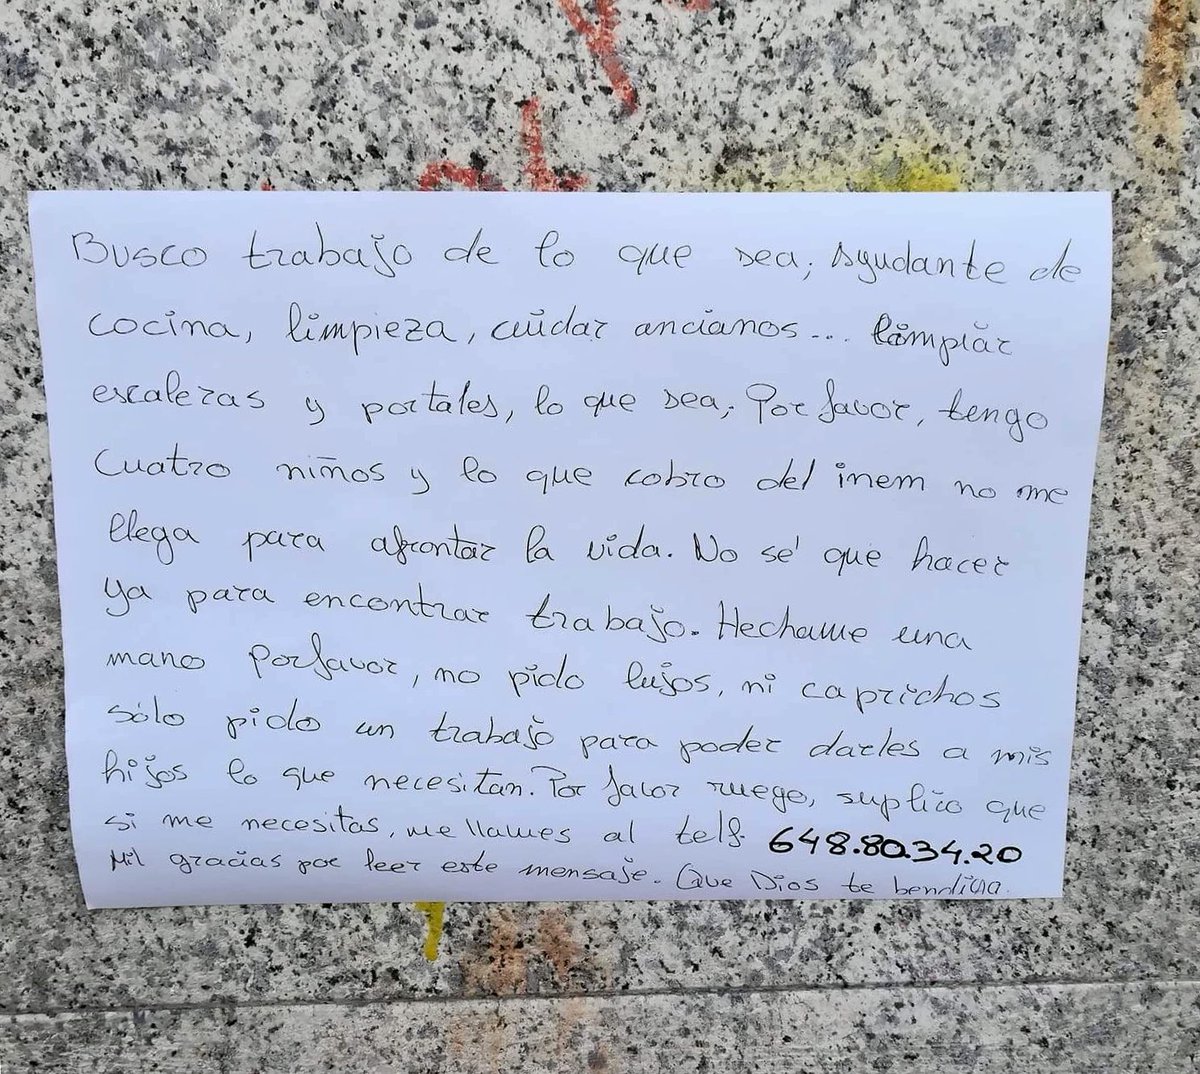 Busco trabajo de lo que sea, ayudante de
cocina, limpieza, cuidar ancianos... limpiar
escaleras y portales, lo que sea, Por favor, tengo
cuatro niños y lo que cobro del inem no me
llega para afrontar la vida. No sé que hacer
ya para encontrar trabajo. Hechame una
mano Porfavor, no pido lujos, ni caprichos
sólo pido un trabajo para poder darles a mis
hijos lo que necesitan. Por favor ruego, suplico que
si me necesitas, me llames al telf. 648.80.34.20
Mil gracias por leer este mensaje. Que Dios te bendiga.